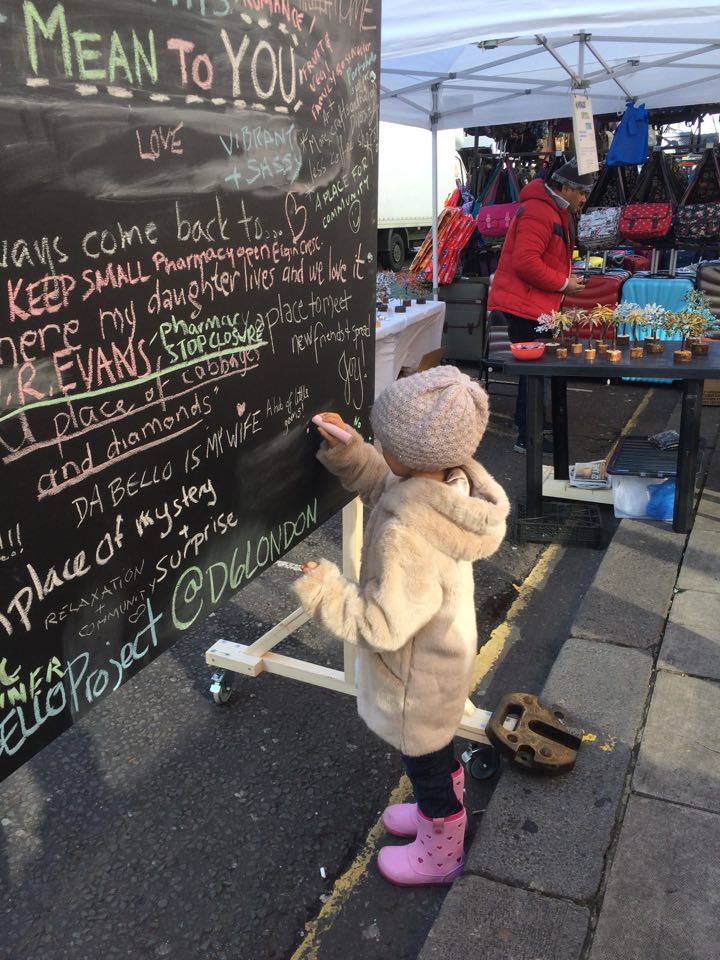 MEAN TO YOU
LOVE
VIBRANT
+ SASSY
A PLACE FOR
COMMUNITY
come back to...
KEEP SMALL Pharmacy open Elgin Cresc.
my daughter lives and we love it
pharmacy
STOP CLOSURE
R. EVANS
a place to meet
new friends + spread
Joy!
place of cabbages
and diamonds"
DA BELLO IS MY WIFE
A hub of little
gems!
!!!
A place of mystery
+
surprise
RELAXATION
+
COMMUNITY
Project @D6LONDON